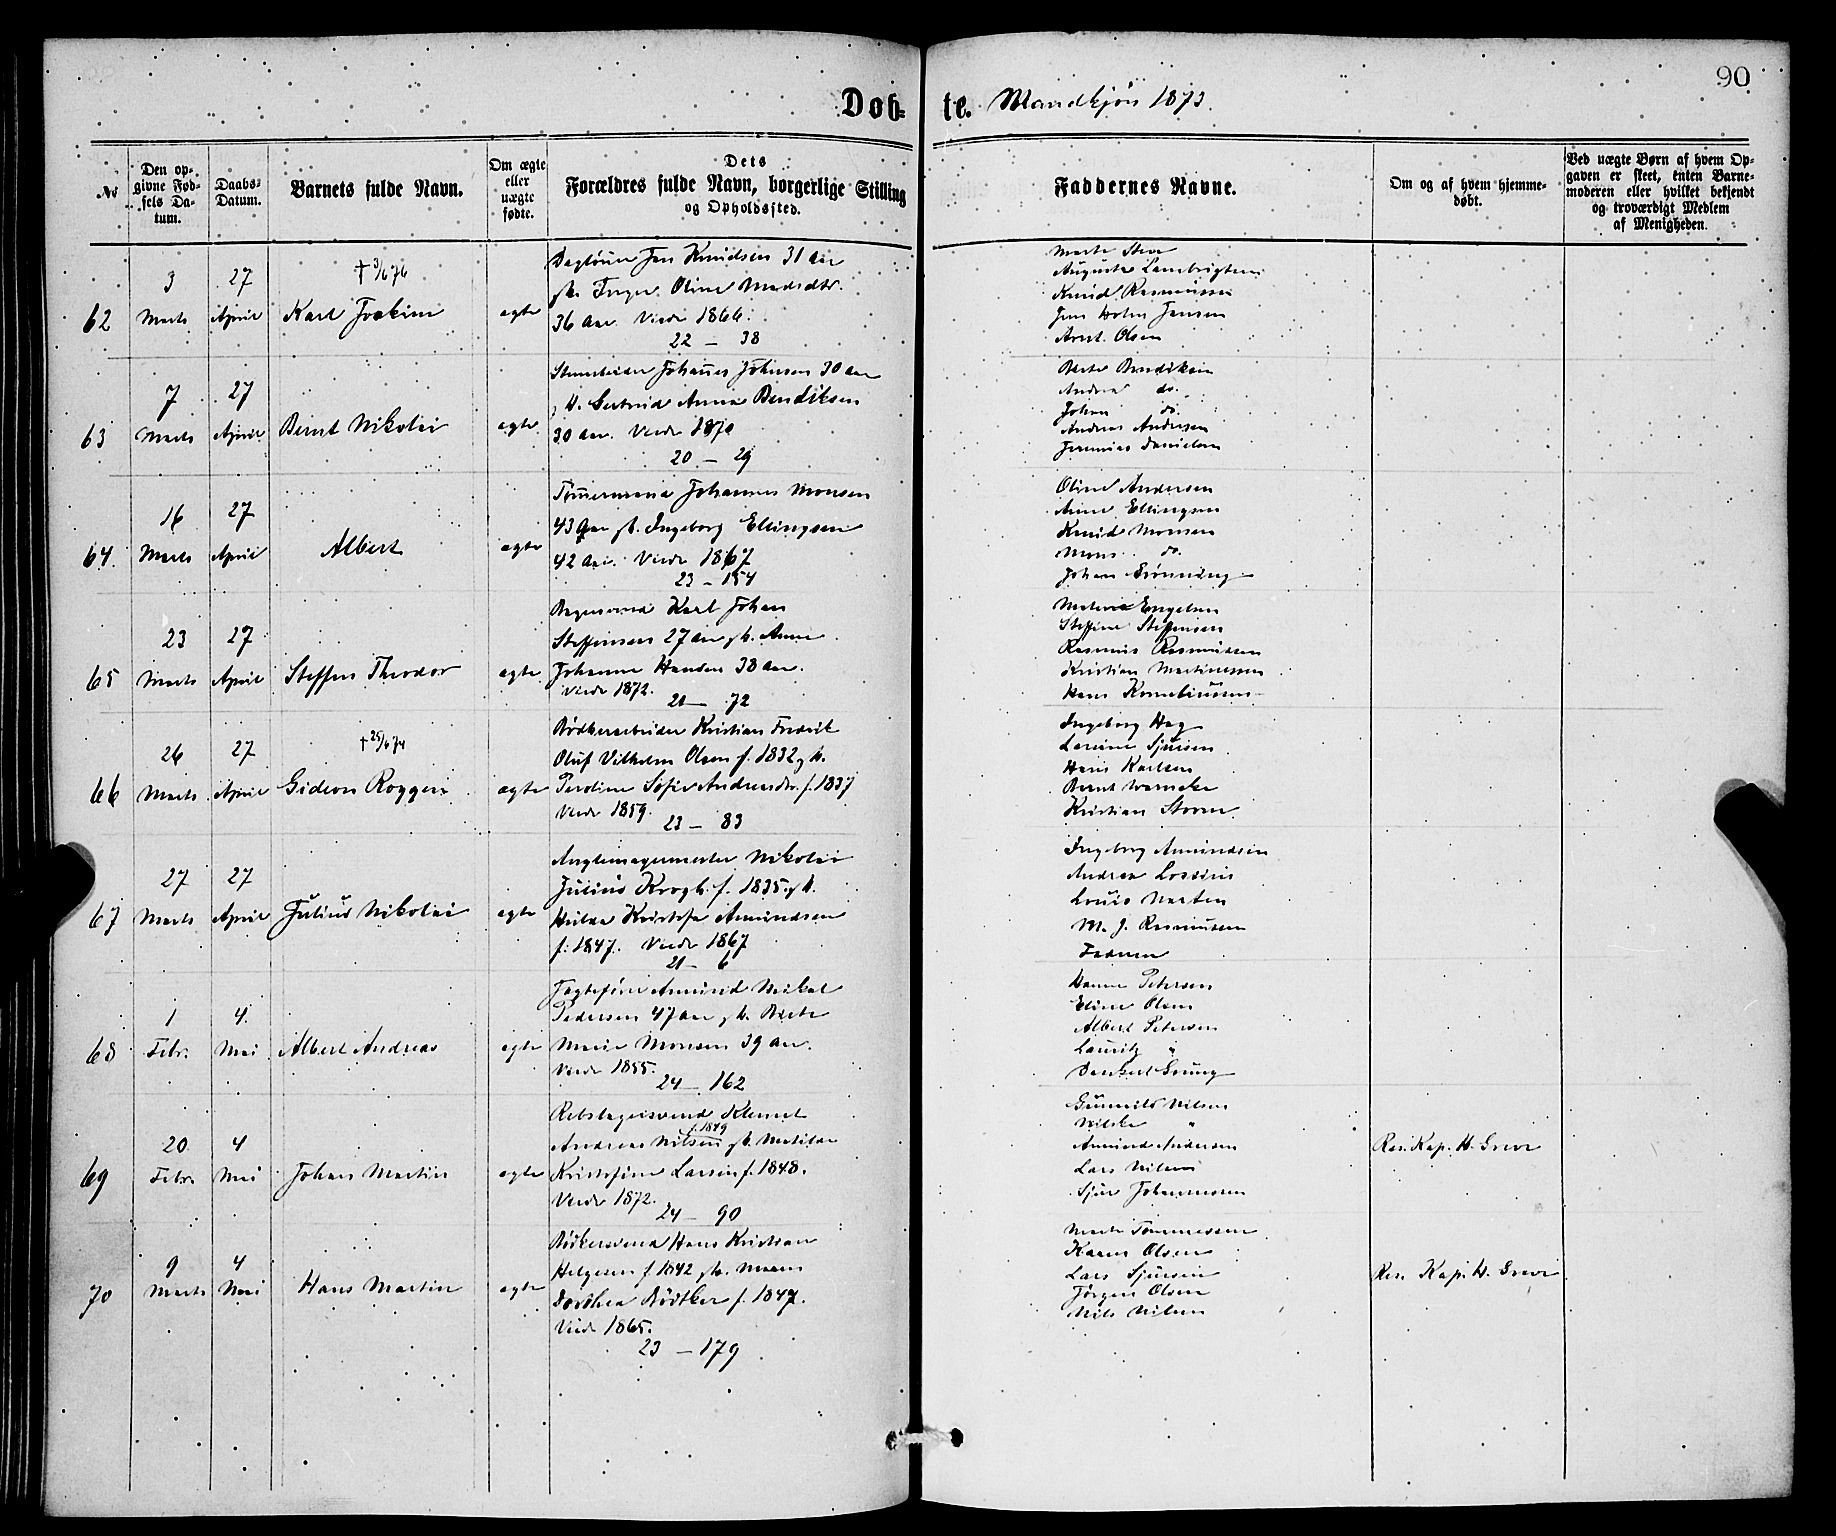 90
Døb- te. Mandkjøn 1873.
No
Den op-
givne Fød-
sels Da-
tum.
Daabs-
Datum.
Barnets fulde Navn.
Om ægte
eller
uægte
fødte.
Dets
Forældres fulde Navn, borgerlige Stilling
og Opholdssted.
Faddernes Navne.
Om og af hvem hjemme-
døbt.
Ved uægte Børn af hvem Op-
gaven er skeet, enten Barne-
moderen eller hvilket bekjendt
og troværdigt Medlem
af Menigheden.
62
3
Marts
27
April
† 3/6 76
Karl Joakim
ægte
Jens Knudsen 31 Aar
Oline Madsdtr.
36 Aar. Viede 1866.
22 - 38
Knud Rasmussen
Jens Holm Jensen
Arnt. Olsen
63
7
Marts
27
April
Bernt Nikolai
ægte
Johannes Johnsen 30 Aar
Gertrud Anna Bendiksen
30 Aar. Viede 1870
20 - 29
Berte Bendiksen
Andrea do.
Johan do.
Andreas Andersen
Jeremias Danielsen
64.
16
Marts
27
April
Albert
ægte
Tømmermand Johannes Monsen
43 Aar gh. Ingeborg Ellingsen
42 Aar. Viede 1867
23 - 154
Oline Andersen
Anne Ellingsen
Knud Monsen
Mons do.
Johan Grønning
65
23
Marts
27
April
Steffen Theodor
ægte
Bagersvend Karl Johan
Steffensen 27 Aar gh. Anne
Johanne Hansen 38 Aar.
Viede 1872.
21 - 72
Engelsen
Steffine Steffensen
Rasmus Rasmussen
Kristian Martinussen
Hans Korneliussen
66
26
Marts
27
April
† 25/6 74
Gideon Roggen
ægte
Bødkerarbeider Kristian Fredrik
Oluf Vilhelm Olsen f. 1832 gh.
Peroline Sofie Andreasdtr. f. 1837
Viede 1859.
23 - 83
Ingeborg Hog
Lavine Sjursen
Hans Karlsen
Bernt Warncke
Kristian Storm
67
27
Marts
27
April
Julius Nikolai
ægte
Nikolai
Julius Krogh f. 1835 gh.
Hulda Kristofa Amundsen
f. 1847. Viede 1867
21 - 6
Ingeborg Amundsen
Andrea Lossius
Louis Marten
M. J. Rasmussen
Faderen
68
1
Febr.
4.
Mai
Albert Andreas
ægte
Amund Mikal
Pedersen 47 Aar gh. Berte
Marie Monsen 39 Aar.
Viede 1855.
24 - 162
Hanna Petersen
Eline Olsen
Albert Petersen
Lauritz "
Dankert Grung
69
20
Febr.
4
Mai
Johan Martin
ægte
Rebslagersvend Klemet
f. 1849
Andreas Nilsen gh. Matilde
Kristofine Larsen f. 1848.
Viede 1872.
24 - 90
Gunnild Nilsen
Vilske "
Amund Andersen
Lars Nilsen
Sjur Johannessen
Res. Kap. H. Greve
70
9
Marts
4
Mai
Hans Martin
ægte
Bødkersvend Hans Kristian
Helgesen f. 1842 gh. Maren
Dorthea Bødtker f. 1847.
Viede 1865.
23 - 179
Marte Tønnessen
Karen Olsen
Lars Sjursen
Jørgen Olsen
Nils Nilsen
Res. Kap. H. Greve